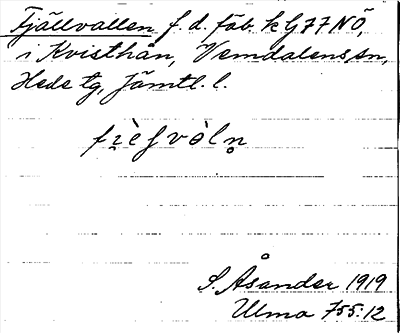 Fjällvallen f. d. fäb. k G77NÖ,
i Kvisthån, Vemdalens sn,
Hede tg, Jämtl. l.
S. Åsander 1919
Ulma 755:12